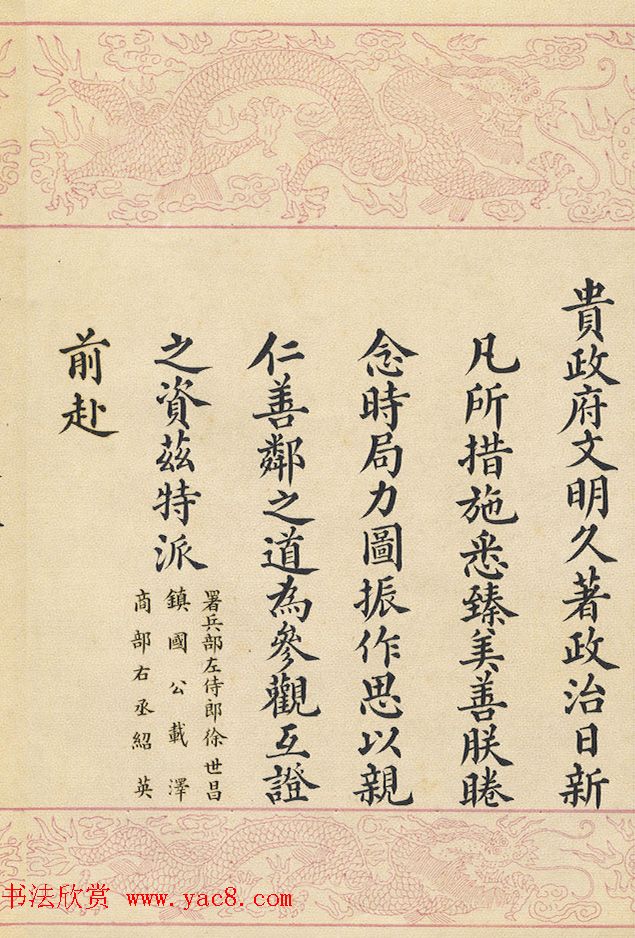 貴政府文明久著政治日新
凡所措施悉臻美善朕睠
念時局力圖振作思以親
仁善鄰之道為參觀互證
之資茲特派
署兵部左侍郎徐世昌
鎮國公載澤
商部右丞紹英
前赴
书法欣赏 www.yac8.com